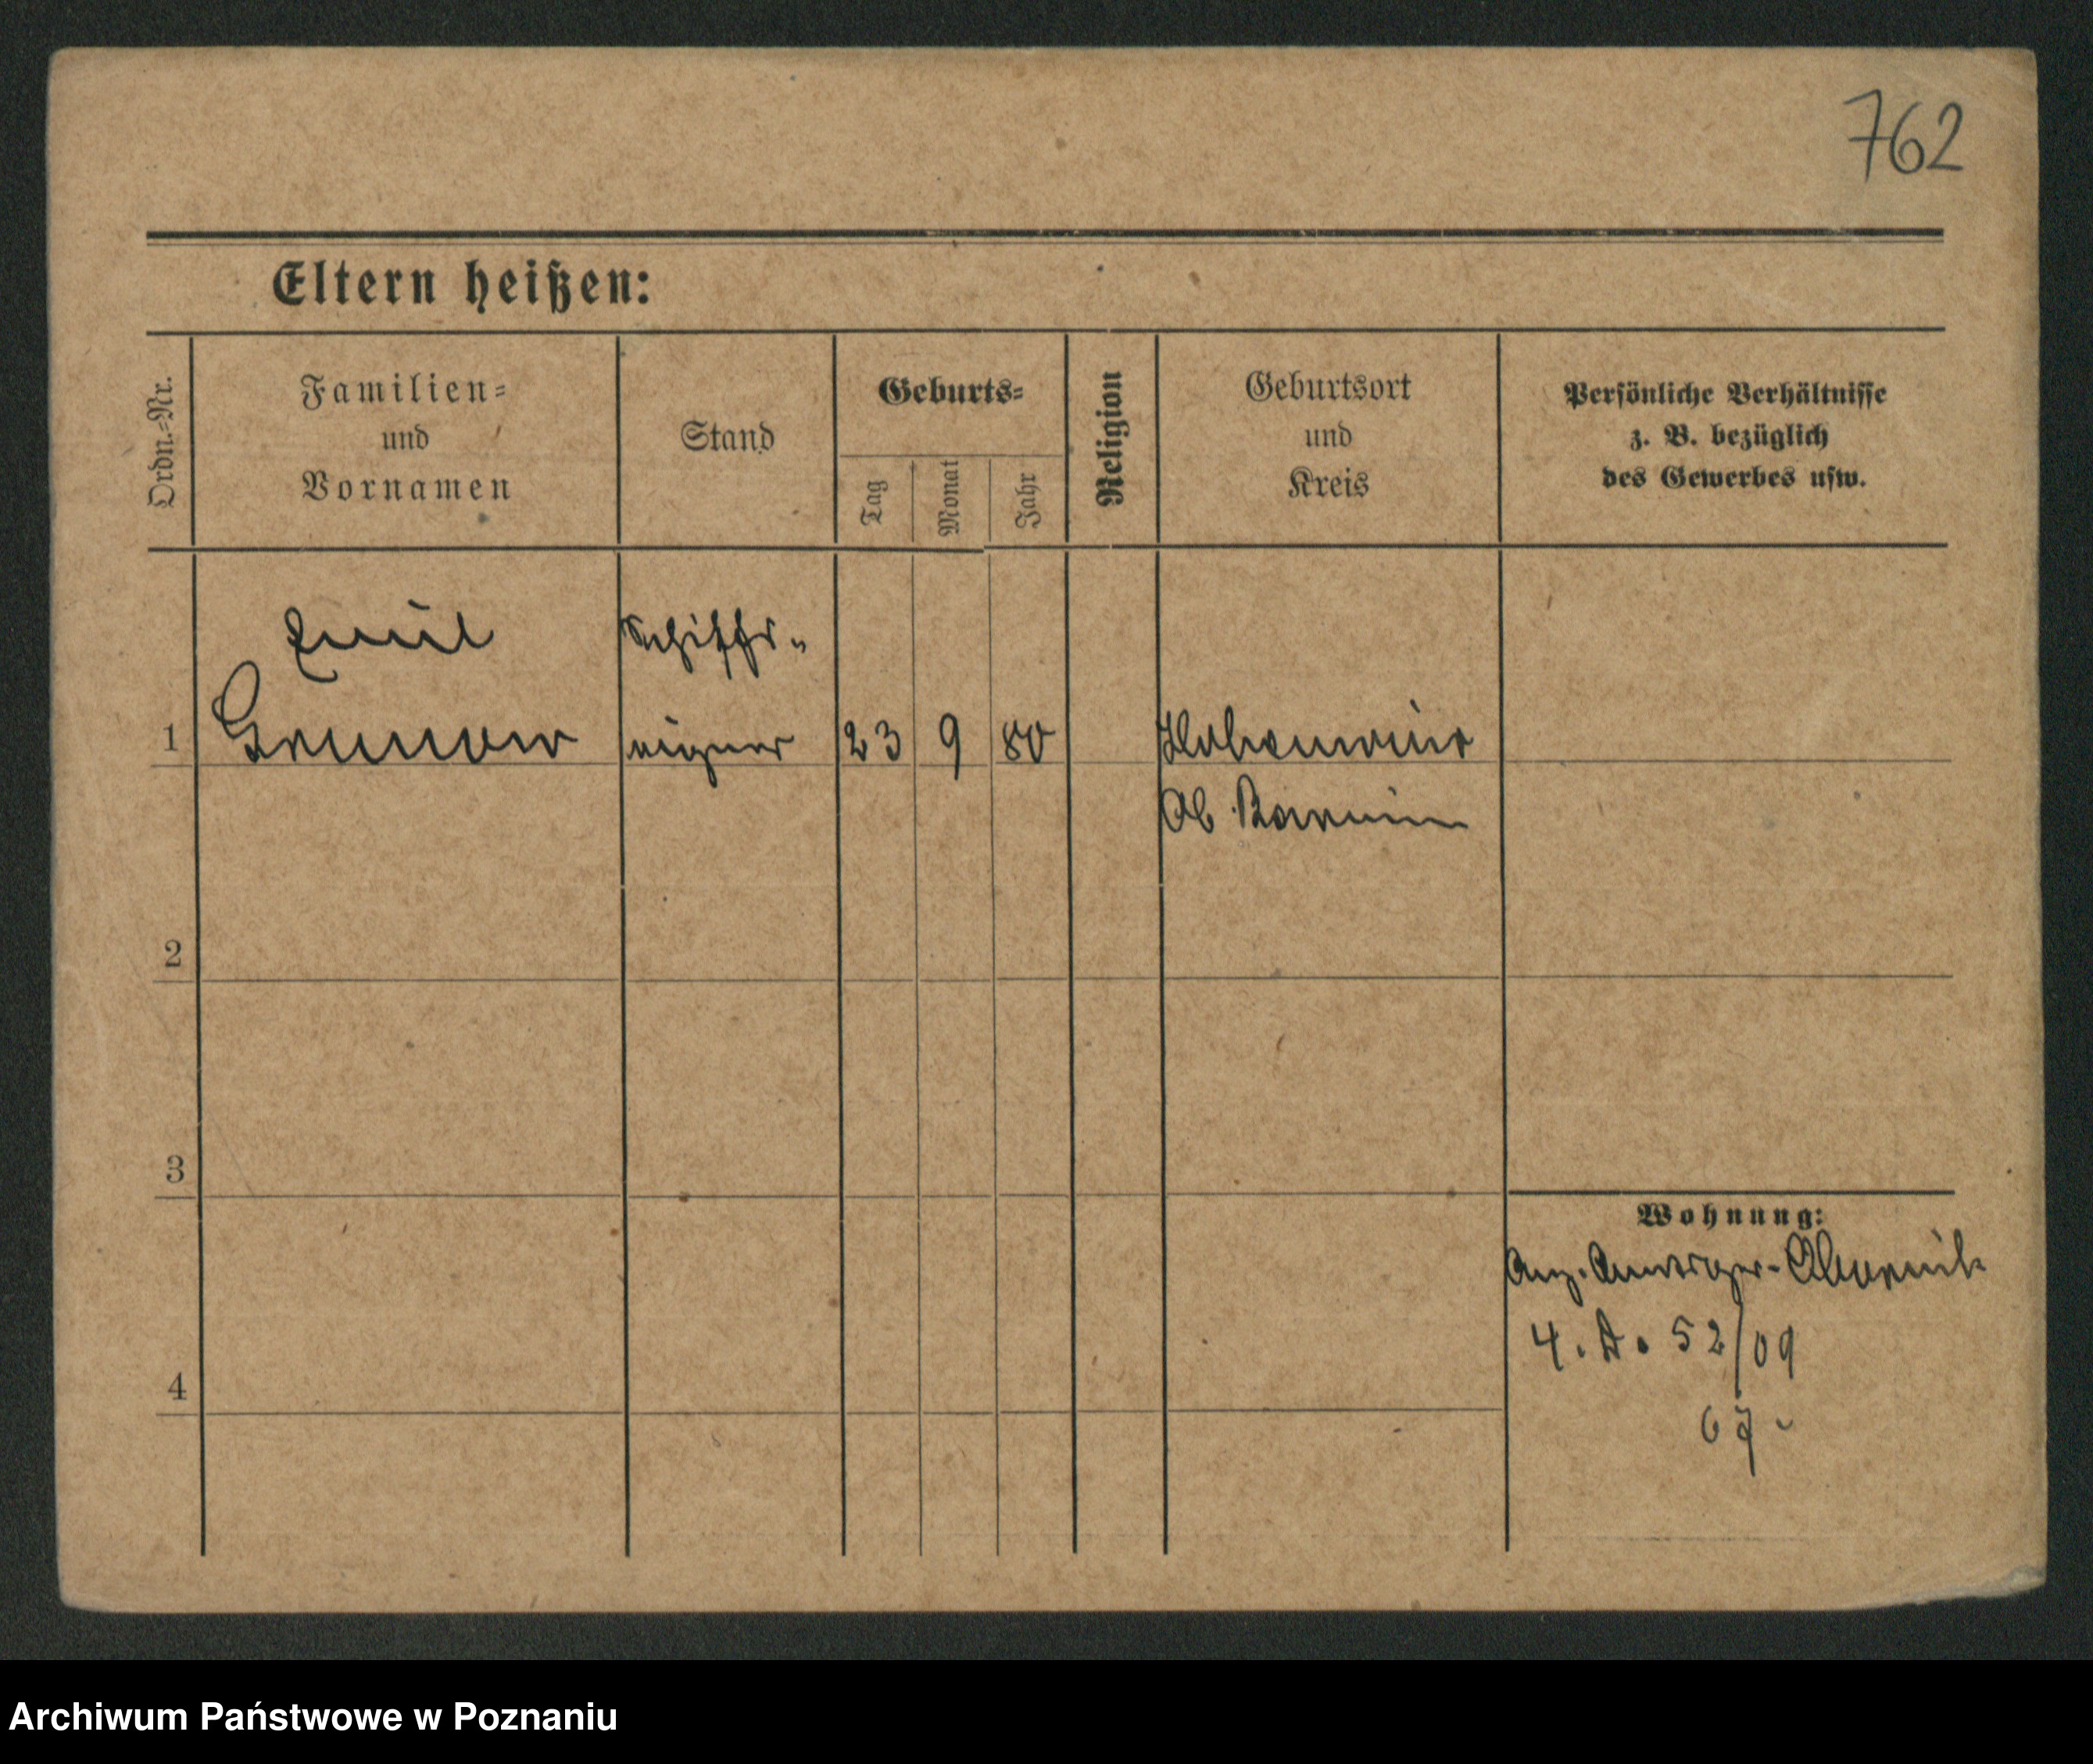 762
Eltern heißen:
Ordn.-Nr.
Familien-
und
Vornamen
Stand
Geburts-
Tag
Monat
Jahr
Religion
Geburtsort
und
Kreis
Persönliche Verhältnisse
z. B. bezüglich
des Gewerbes usw.
Emil
Schiffs-
1
Grunow
eigner
23
9
80
Ob Barnim
2
3
Wohnung:
4. D. 52/09
4
67
Archiwum Państwowe w Poznaniu